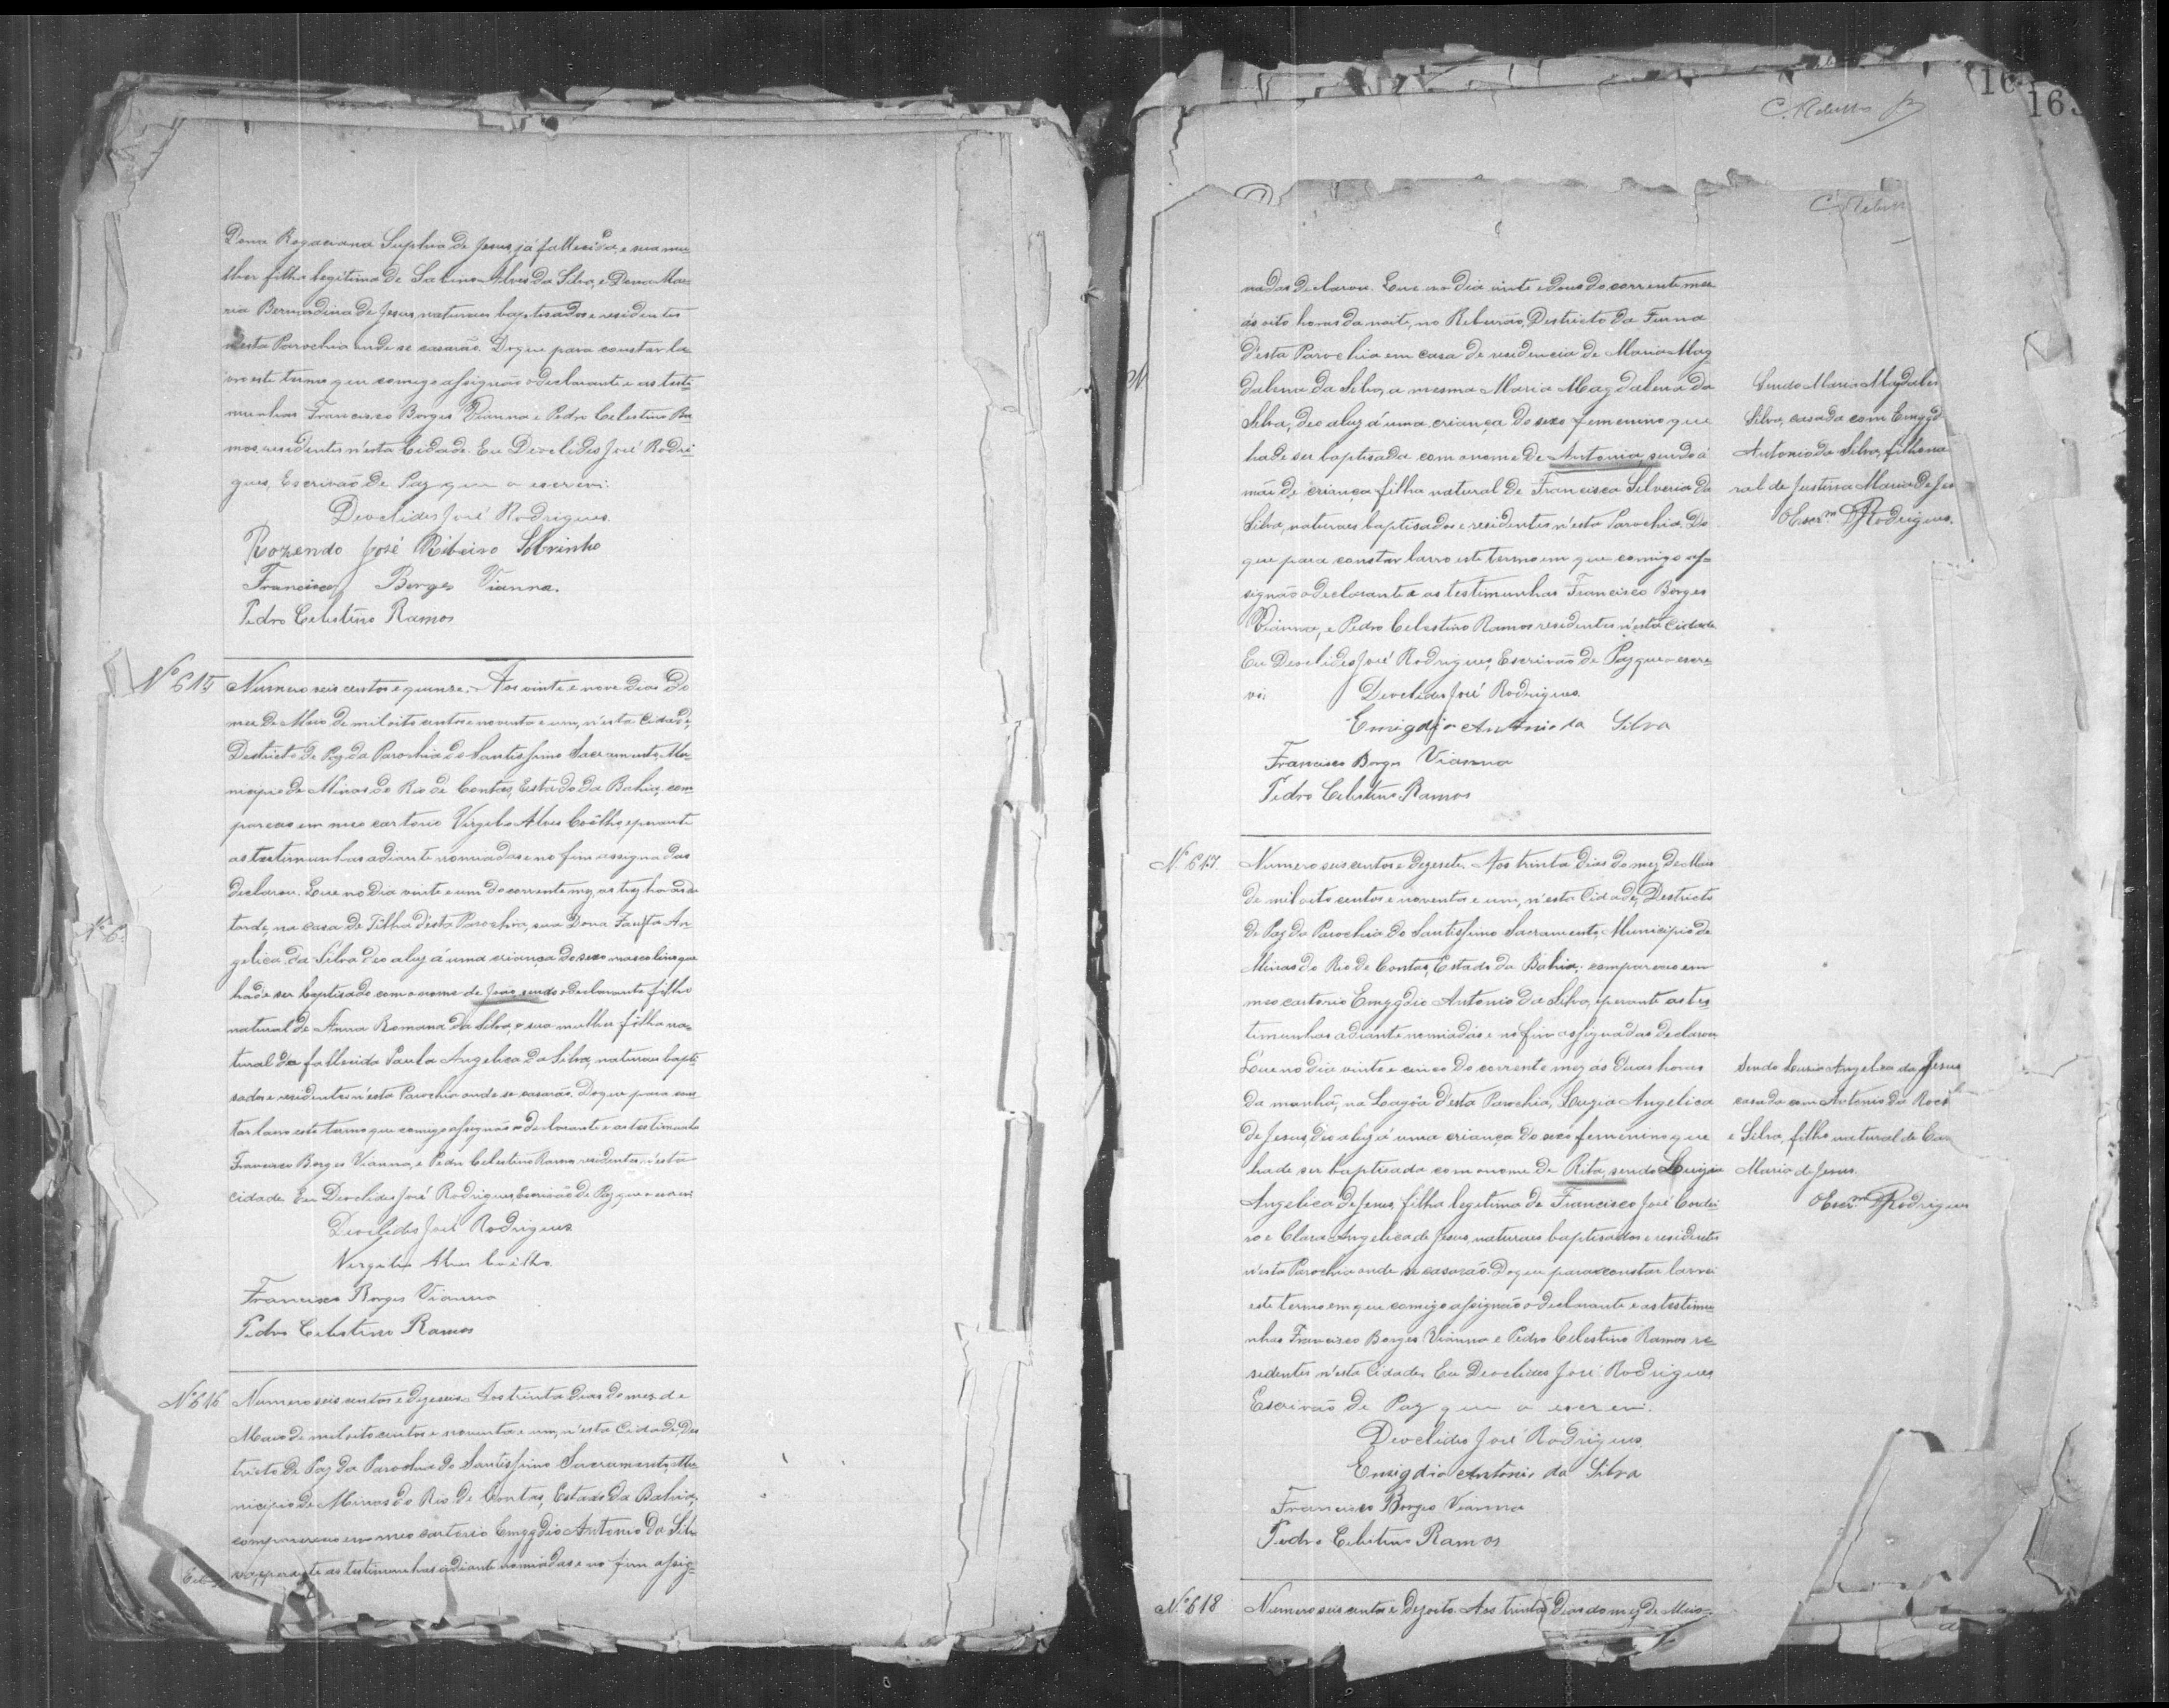 Dona Rogaciana Suphia de Jesus, já fallecida, e sua mu-
lher filha legitima de Sabino Alves da Silva, e Dona Ma-
ria Bernardina de Jesus, naturaes baptisados e residentes
nesta Parochia onde se casarão. Do que para constar la-
vro este termo que comigo assignão o declarante e as teste-
munhas Francisco Borges Vianna e Pedro Celestino Ra-
mos, residentes n'esta Cidade. Eu Deoclides José Rodri-
gues, Escrivão de Paz que o escrevi.
Deoclides José Rodrigues.
Rozendo José Ribeiro Sobrinho
Francisco Borges Vianna.
Pedro Celestino Ramos
Nº 615 Numero seis centos e quinze. Aos vinte e nove dias do
mez de Maio de mil oito centos e noventa e um, n'esta Cidade,
Destricto de Paz da Parochia do Santissimo Sacramento, Mu-
nicipio de Minas do Rio de Contas, Estado da Bahia, com-
pareceo em meo cartorio Virgilio Alves Coêlho, e perante
as testimunhas adiante nomiadas e no fim assignadas
declarou. Que no dia vinte e um do corrente mez, as trez horas da
tarde, na casa de Tilha d'esta Parochia, sua Dona Fausta An-
gelica da Silva deo a luz á uma criança do sexo mascolino que
hade ser baptisado com o nome de João, sendo o declarante filho
natural de Anna Romana da Silva, e sua mulher filha na-
tural da fallecida Paula Angelica da Silva, naturaes bapti-
sados e residentes n'esta Parochia onde se casarão. Do que para cons-
tar lavro este termo que comigo assignão o declarante e as testimunhas
Francisco Borges Vianna, e Pedro Celestino Ramos, residentes n'esta
cidade. Eu Deoclides José Rodrigues, Escrivão de Paz, que o escrevi.
Deoclides José Rodrigues
Virgilio Alves Coêlho.
Francisco Borges Vianna
Pedro Celestino Ramos
Nº 616 Numero seis centos e dezeseis. Aos trinta dias do mez de
Maio de mil oito centos e noventa e um, n'esta Cidade, Des-
tricto de Paz da Parochia do Santissimo Sacramento, Mu-
nicipio de Minas do Rio de Contas, Estado da Bahia,
compareceo em meo cartorio Emygdio Antonio da Sil-
va, perante as testimunhas adiante nomiadas e no fim assig-
163
nadas declarou. Que no dia vinte e dous do corrente mez
ás oito horas da noite, no Reberão, Destricto da Furna
d'esta Parochia em casa de residencia de Maria Mag-
dalena da Silva, a mesma Maria Magdalena da
Silva, deo a luz á uma criança do sexo femenino que
hade ser baptisada com o nome de Antonia, sendo á
mãi de criança filha natural de Francisca Silveria da
Silva, naturaes baptisados e residentes n'esta Parochia. Do
que para constar lavro este termo em que comigo as-
signão o declarante e as testimunhas Francisco Borges
Vianna, e Pedro Celestino Ramos residentes n'esta Cidade
Eu Deoclides José Rodrigues, Escrivão de Paz que o escre-
vi. Deoclides José Rodrigues.
Emigdio Antonio da Silva
Francisco Borges Vianna
Pedro Celestino Ramos
Sendo Maria Magdalen
Silva, casada com Emygd
Antonio da Silva, filha na
ral de Justina Maria de Jes
O Escr.m DJRodrigues.
Nº 617. Numero seis centos e dezesete. Aos trinta dias do mez de Maio
de mil oito centos e noventa e um, n'esta Cidade, Destricto
de Paz da Parochia do Santissimo Sacramento, Municipio de
Minas do Rio de Contas, Estado da Bahia, compareceo em
meo cartorio Emygdio Antonio da Silva, e perante as tes-
timunhas adiante nomiadas e no fim assignadas declarou
Que no dia vinte e cinco do corrente mez, ás duas horas
da manhã, na Lagôa d'esta Parochia, Luzia Angelica
de Jesus, deo a luz á uma criança do sexo femenino que
hade ser baptisada com o nome de Rita, sendo Luizia
Angelica de Jesus, filha legitima de Francisco José Cordei-
ro e Clara Angelica de Jesus, naturaes baptisados e residentes
n'esta Parochia onde se casarão. Do que para constar lavrei
este termo em que comigo assignão o declarante e as testimu-
nhas Francisco Borges Vianna e Pedro Celestino Ramos re-
sidentes n'esta Cidade. Eu Deoclides José Rodrigues
Escrivão de Paz que o escrevi.
Deoclides José Rodrigues.
Emigdio Antonio da Silva
Francisco Borges Vianna
Pedro Celestino Ramos
Sendo Luzia Angelica de Jesus
casada com Antonio da Roch
e Silva, filho natural de
Maria de Jesus.
O Escr.m DJRodrigues
Nº 618 Numero seis centos e dezoito. Aos trinta dias do mez de Maio